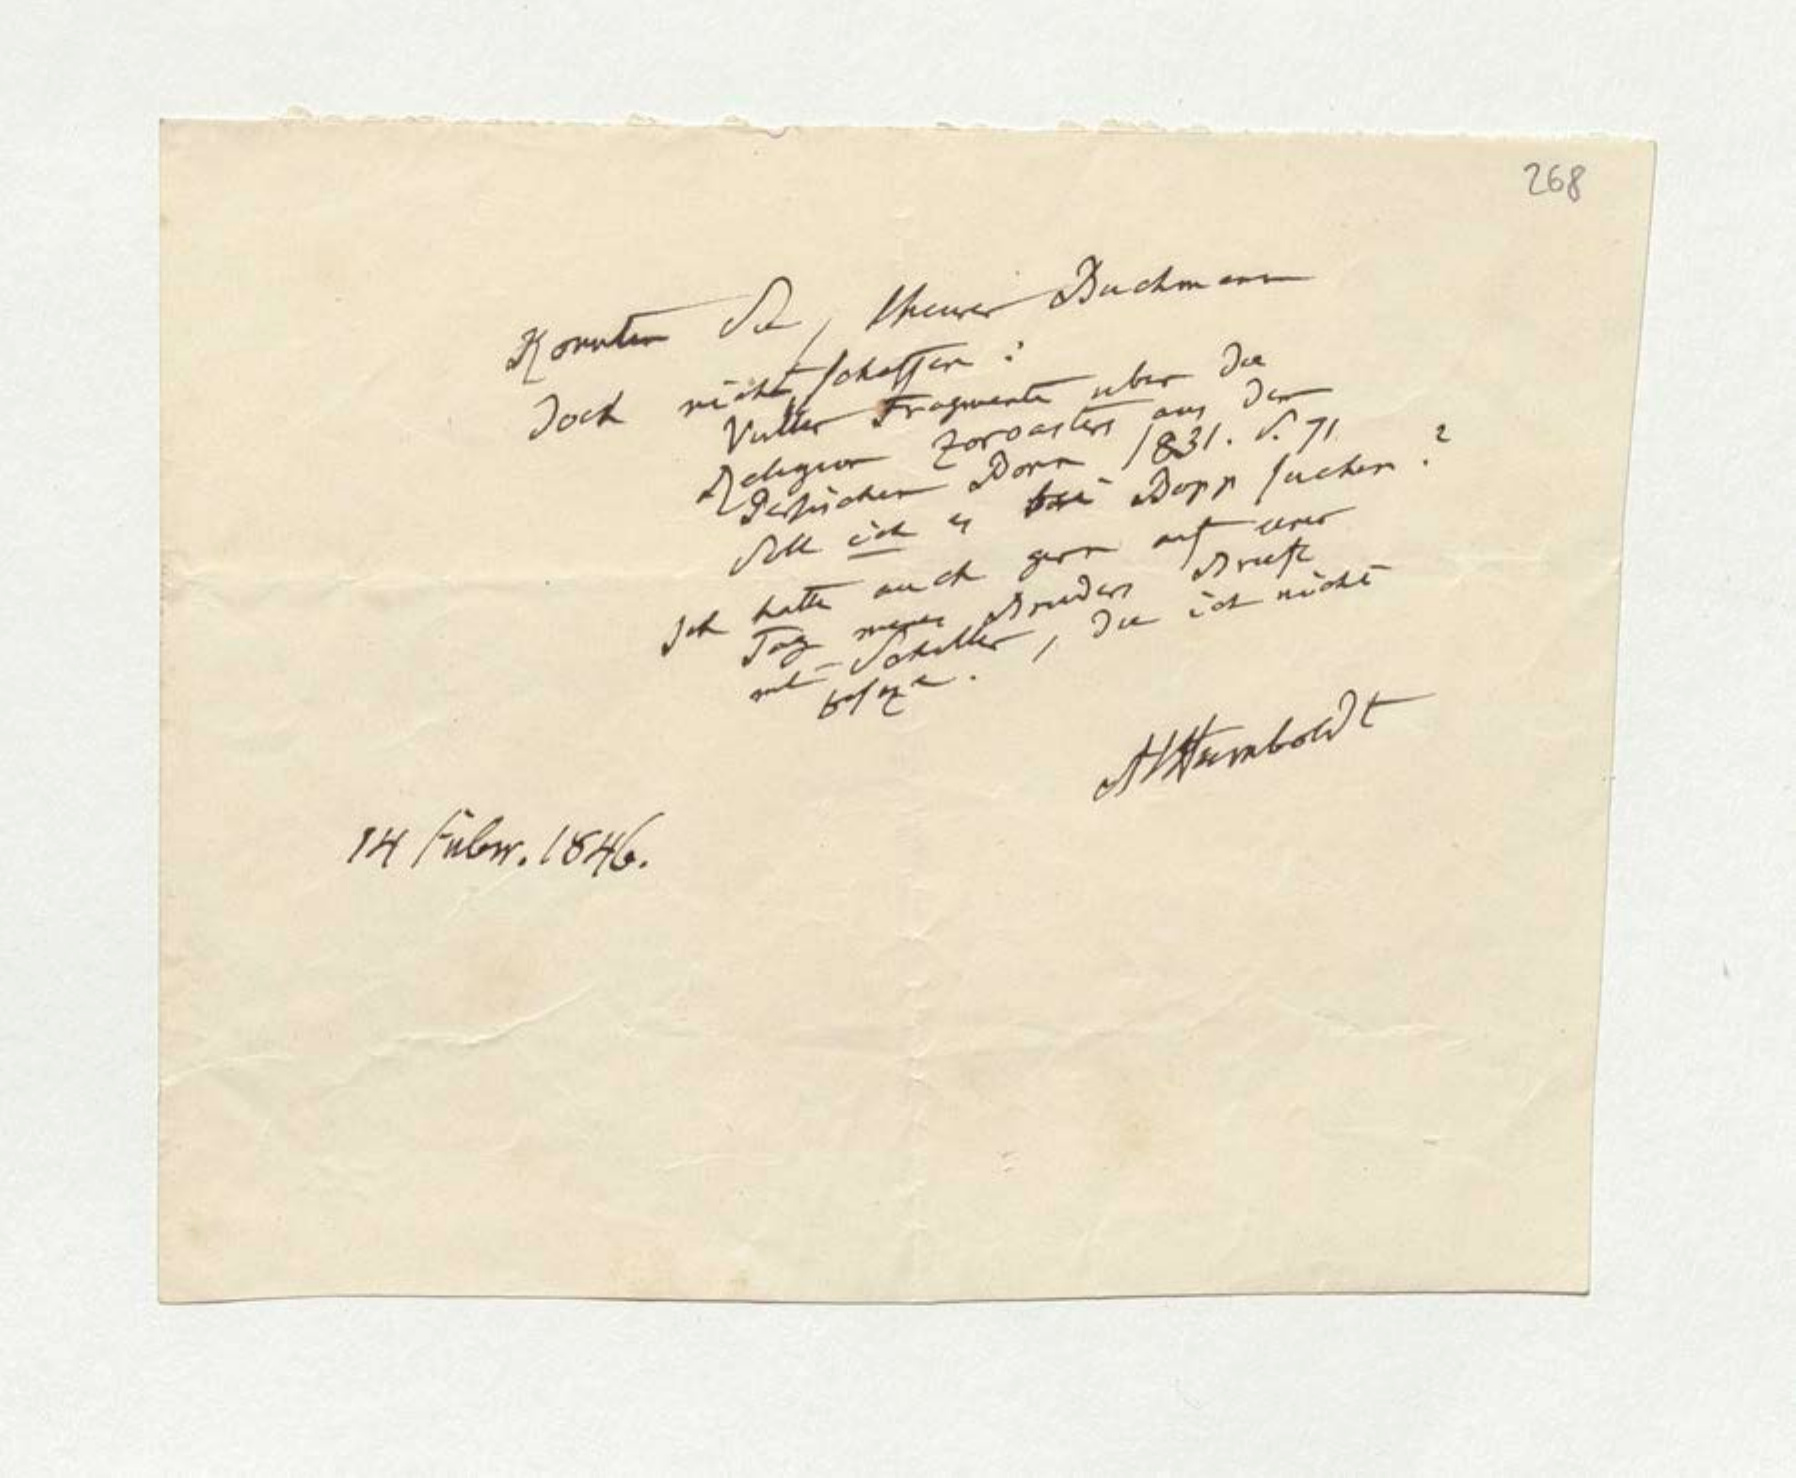 268
Konnten Sie, theurer Buchmann
doch nicht schaffen:
Vuller Fragmente uber die
Religion Zoroasters aus dem
Persischen Bonn 1831. S. 71
Soll ich es bei Bopp suchen?
Ich hatte auch gern auf einen
Tag meines Bruders Briefe
mit Schiller, die ich nicht
besize.
AvHumboldt
14 Febr. 1846.